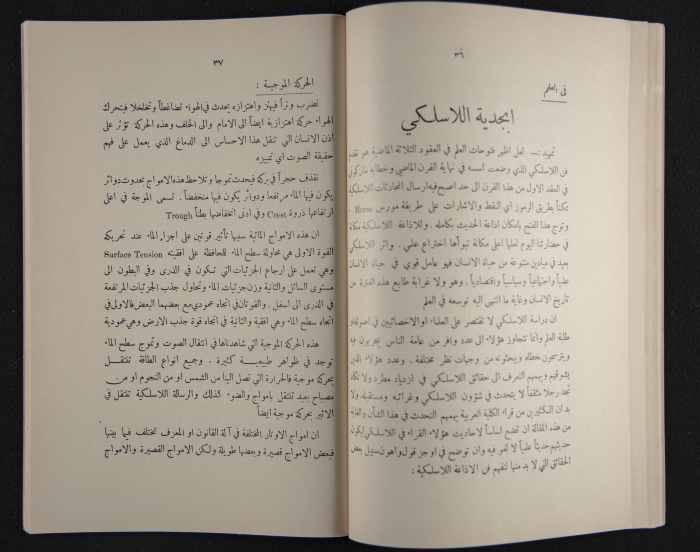 ٣٦
في العلم
ابجدية اللاسلكي
تمهيد :— لعل اظهر فتوحات العلم في العقود الثلاثة الماضية هو تقدم
فن اللاسلكي الذي وضعت اسسه في نهاية القرن الماضي وخطا به ماركوني
في العقد الاول من هذا القرن الى حد اصبح فيه ارسال المحادثات اللاسلكية
ممكناً بطريق الرموز اي النقط والاشارات على طريقة مورس Morse ،
وتوج هذا الفتح بامكان اذاعة الحديث بكامله . وللاذاعة اللاسلكية مكانة
في حضارتنا اليوم لعلها اعلى مكانة تبوأها اختراع علمي . واثر اللاسلكي
بعيد في ميادين متنوعة من حياة الانسان فهو عامل قوي في حياة الانسان
علمياً واجتماعياً وسياسياً واقتصادياً . وهو ولا غرابة طابع هذه الفترة من
تاريخ الانسان وغاية ما انتهى اليه توسعه في العلم
ان دراسة اللاسلكي لا تقتصر على العلماء او الاخصائيين في اصوله او
طلبة العلم وانما تتجاوز هؤلاء الى عدد وافر من عامة الناس يجرون فيه
ويترسمون خطاه ويبحثونه من وجهات نظر مختلفة . وعدد هؤلاء الذين
يشوقهم ويهمهم التعرف الى حقائق اللاسلكي في ازدياد مطرد ولا تكاد
تجد رجلا مثقفاً لا يتحدث في شؤون اللاسلكي وغرائبه ومستقبله ولا
بد ان الكثيرين من قراء الكلية العربية يهمهم التحدث في هذا الشأن والغاية
من هذه المقالة ان تضع اساساً لاحاديث هؤلاء القراء في اللاسلكي ليكون
حديثهم حديثاً علمياً لا لغو فيه وان توضح في اوجز قول واهون سبيل بعض
الحقائق التي لا بد منها لتفهم فن الاذاعة اللاسلكية :
٣٧
الحركة الموجية :
نضرب وتراً فيهتز واهتزازه يحدث في الهواء تضاغطاً وتخلخلا فيتحرك
الهواء حركة اهتزازية ايضاً الى الامام والى الخلف وهذه الحركة تؤثر على
اذن الانسان التي تنقل هذا الاحساس الى الدماغ الذي يعمل على فهم
حقيقة الصوت اي تمييزه
نقذف حجراً في بركة فيحدث تموجا وتلاحظ هذه الامواج بحدوث دوائر
يكون فيها الماء مرتفعا ودوائر يكون فيها منخفضاً . تسمى الموجة في اعلى
ارتفاعها ذروة Crest وفي ادنى انخفاضها بطناً Trough
ان هذه الامواج المائية سببها تأثير قوتين على اجزاء الماء عند تحريكه
القوة الاولى هي محاولة سطح الماء للمحافظة على افقيته Surface Tension
وهي تعمل على ارجاع الجزئيات التي تكون في الذرى وفي البطون الى
مستوى السائل والثانية وزن جزئيات الماء وتحاول جذب الجزئيات المرتفعة
في الذرى الى اسفل . والقوتان في اتجاه عمودي مع بعضهما البعض فالاولى في
اتجاه سطح الماء وهي افقية والثانية في اتجاه قوة جذب الارض وهي عمودية
هذه الحركة الموجية التي شاهدناها في انتقال الصوت وتموج سطح الماء
توجد في ظواهر طبيعية كثيرة . وجميع انواع الطاقة تنتقل
بحركة موجية فالحرارة التي تصل الينا من الشمس او من النجوم او من
مصباح بعيد تنتقل بامواج والضوء كذلك والرسالة اللاسلكية تنتقل في
الاثير بحركة موجية ايضاً
ان امواج الاوتار المختلفة في آلة القانون او المعزف تختلف فيما بينها
فبعض الامواج قصيرة وبعضها طويلة ولكن الامواج القصيرة والامواج